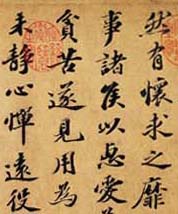 然有懷求之靡
事諸侯以惠愛為
貧苦遂見用為
未靜心憚遠役